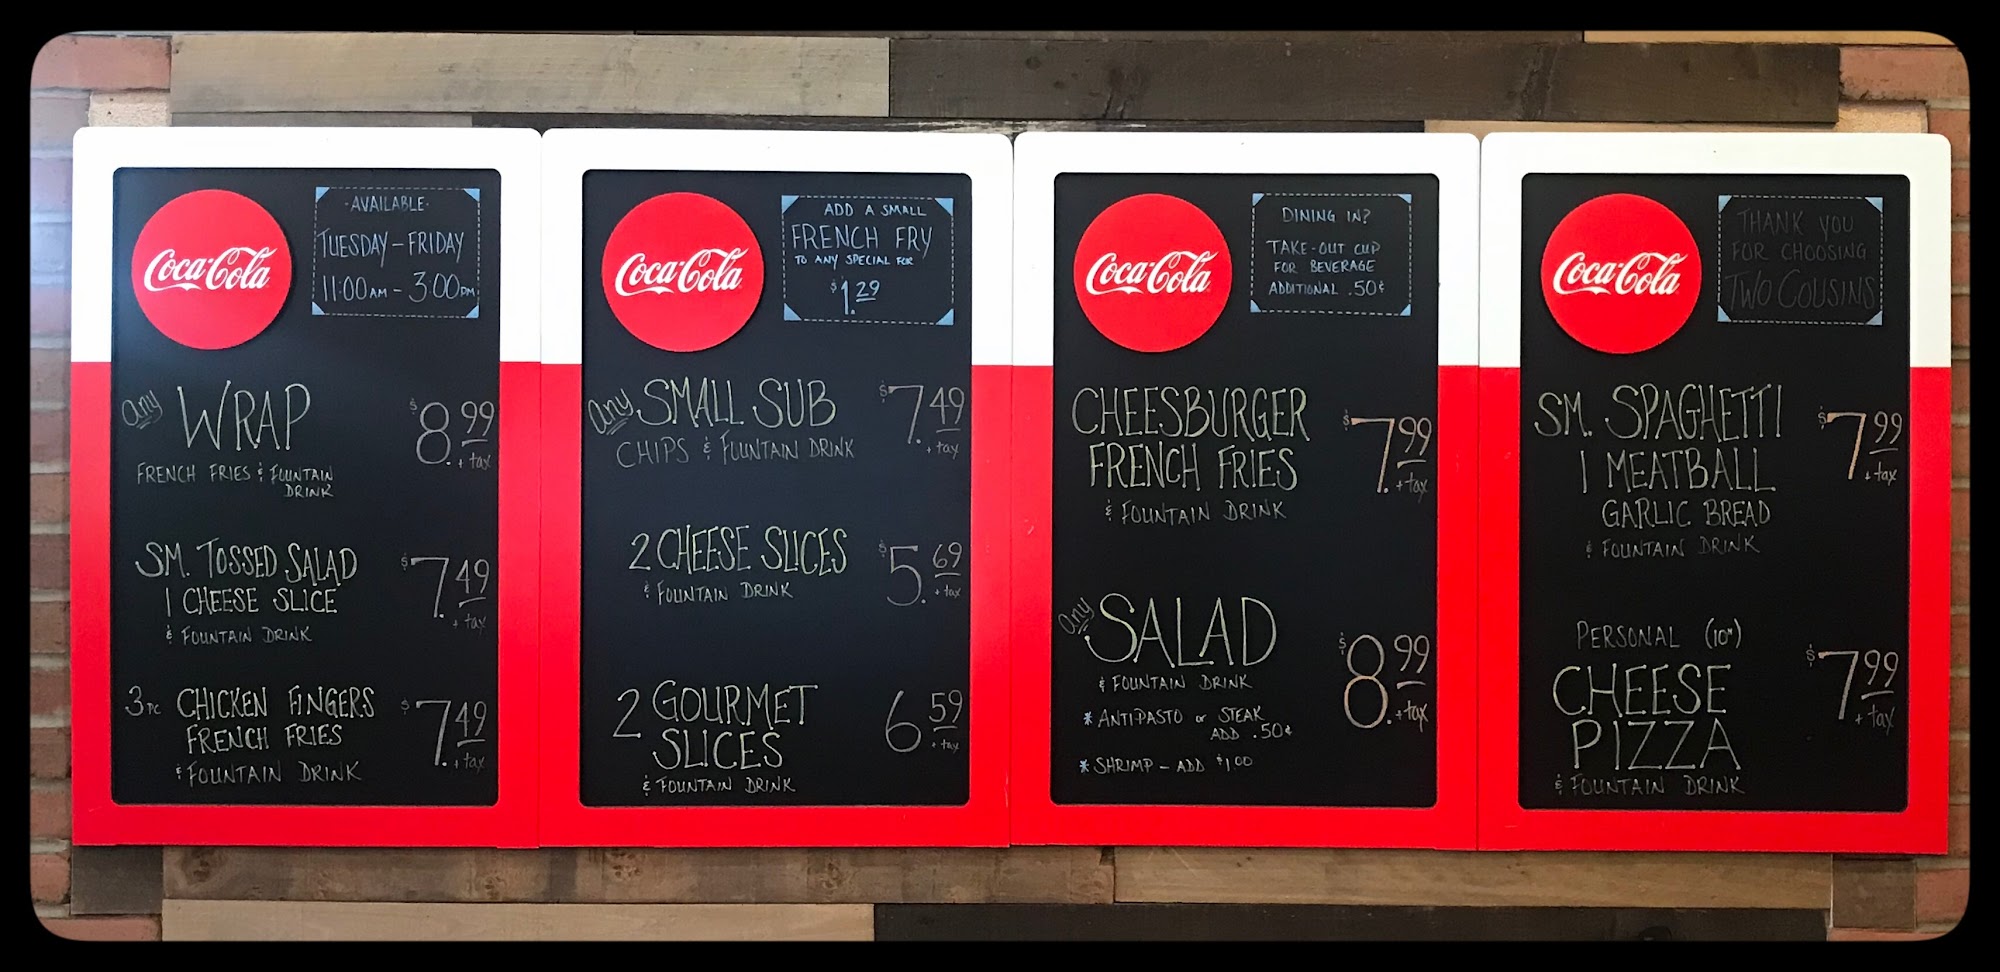 Coca-Cola
·AVAILABLE·
TUESDAY - FRIDAY
11:00 AM - 3:00 PM
any WRAP $8.99 + tax
FRENCH FRIES & FOUNTAIN
DRINK
SM. TOSSED SALAD $7.49 + tax
1 CHEESE SLICE
& FOUNTAIN DRINK
3 PC CHICKEN FINGERS $7.49 + tax
FRENCH FRIES
& FOUNTAIN DRINK
Coca-Cola
ADD A SMALL
FRENCH FRY
TO ANY SPECIAL FOR
$1.29
any SMALL SUB $7.49 + tax
CHIPS & FOUNTAIN DRINK
2 CHEESE SLICES $5.69 + tax
& FOUNTAIN DRINK
2 GOURMET 6.59 + tax
SLICES
& FOUNTAIN DRINK
Coca-Cola
DINING IN?
TAKE-OUT CUP
FOR BEVERAGE
ADDITIONAL .50¢
CHEESBURGER $7.99 + tax
FRENCH FRIES
& FOUNTAIN DRINK
any SALAD $8.99 + tax
& FOUNTAIN DRINK
* ANTIPASTO or STEAK
ADD .50¢
* SHRIMP - ADD $1.00
Coca-Cola
THANK YOU
FOR CHOOSING
TWO COUSINS
SM. SPAGHETTI $7.99 + tax
1 MEATBALL
GARLIC BREAD
& FOUNTAIN DRINK
PERSONAL (10")
CHEESE $7.99 + tax
PIZZA
& FOUNTAIN DRINK